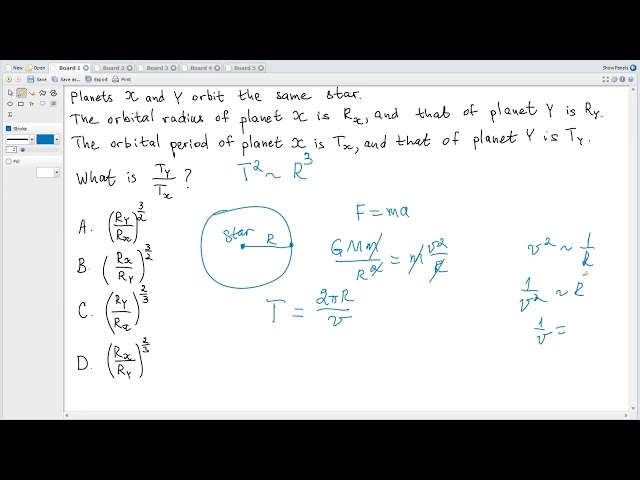 New Open Board 1 Board 2 Board 3 Board 4 Board 5 Show Panels
Save Save as... Export Print
Stroke
2
Fill
Planets X and Y orbit the same star.
The orbital radius of planet X is Rx, and that of planet Y is RY.
The orbital period of planet X is Tx, and that of planet Y is TY.
What is TY/Tx ? T² ~ R³
A. (RY/Rx)^3/2
B. (Rx/RY)^3/2
C. (RY/Rx)^2/3
D. (Rx/RY)^2/3
Star R
F = ma
GMm/R² = m v²/R
T = 2πR/v
v² ~ 1/R
1/v² ~ R
1/v =